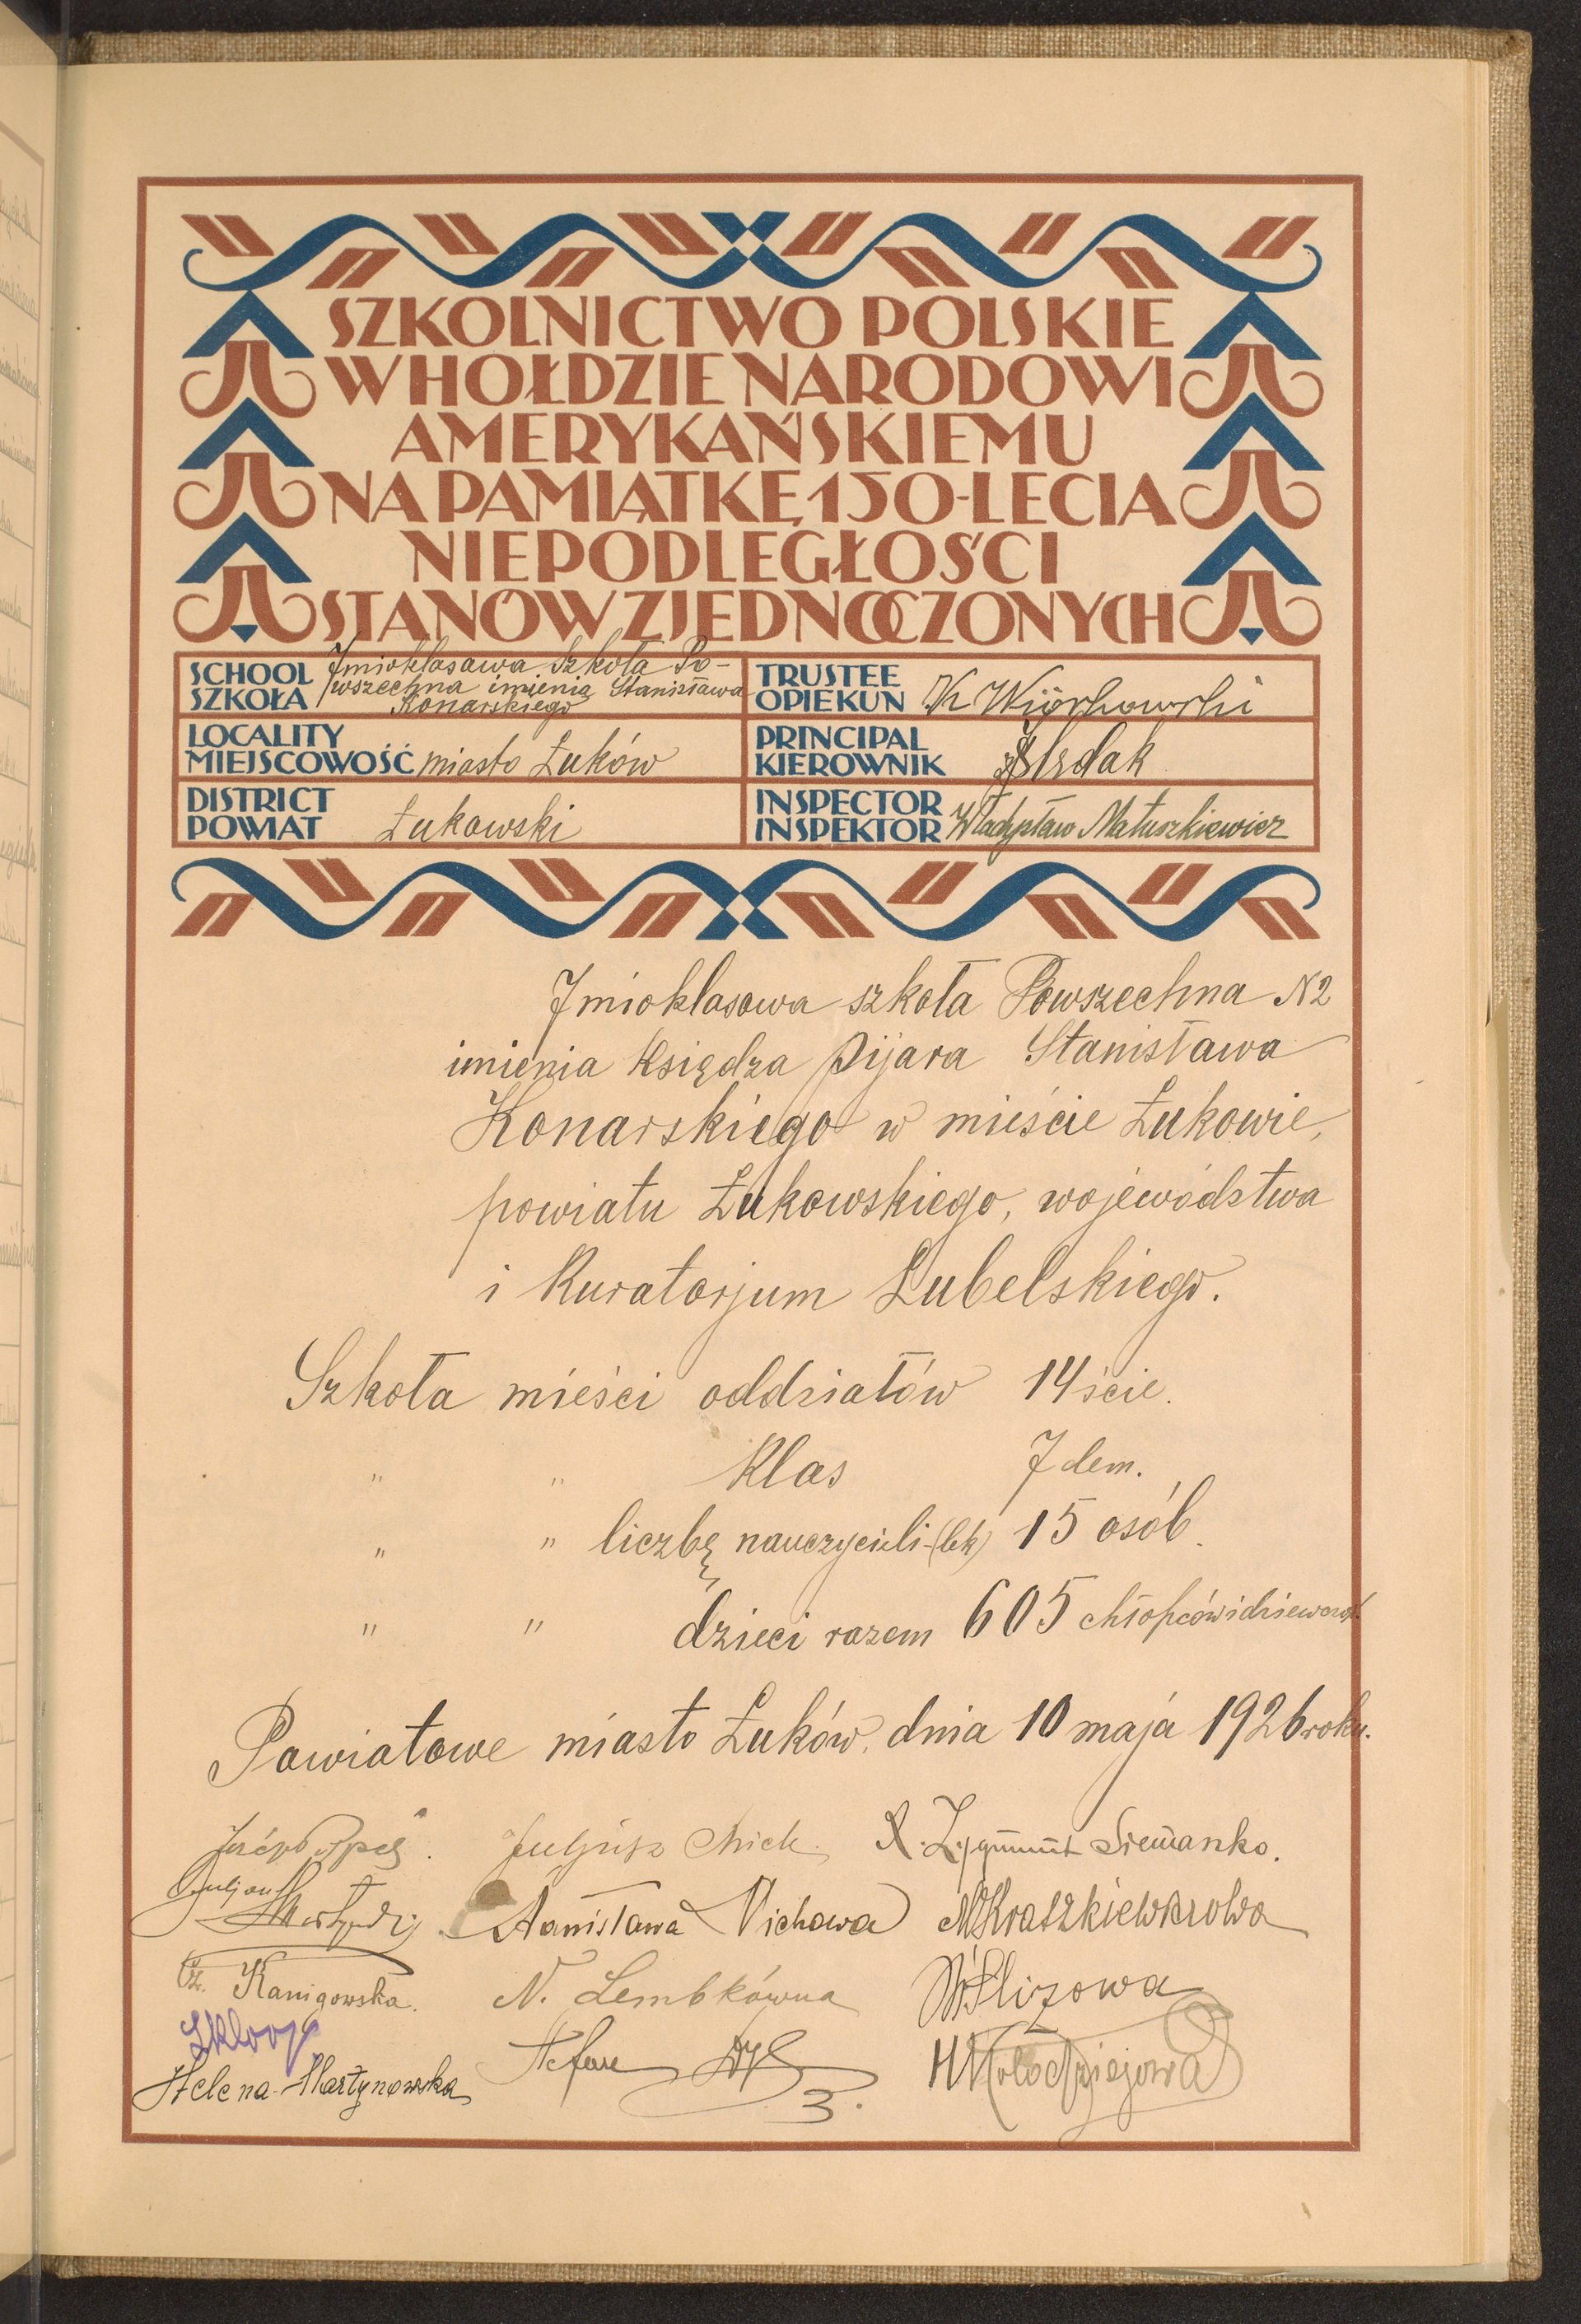 SZKOLNICTWO POLSKIE
W HOŁDZIE NARODOWI
AMERYKAŃSKIEMU
NA PAMIĄTKĘ 150-LECIA
NIEPODLEGŁOŚCI
STANÓW ZJEDNOCZONYCH
SCHOOL
SZKOŁA
7mioklasowa Szkoła Po-
wszechna imienia Stanisława
Konarskiego
TRUSTEE
OPIEKUN
LOCALITY
MIEJSCOWOŚĆ miasto Łuków
PRINCIPAL
KIEROWNIK
DISTRICT
POWIAT Łukowski
INSPECTOR
INSPEKTOR Władysław Matuszkiewicz
7mioklasowa szkoła Powszechna N2
imienia Księdza Pijara Stanisława
Konarskiego w mieście Łukowie,
powiatu Łukowskiego, województwa
i Kuratorjum Lubelskiego.
Szkoła mieści oddziałów 14ście.
" " Klas 7dem.
" " liczbę nauczycieli-(lek) 15 osób.
" " dzieci razem 605 chłopców i dziewcząt.
Powiatowe miasto Łuków, dnia 10 maja 1926 roku.
Józef
Juljusz
X. Zygmunt Siemanko.
Juljan
Stanisława Wichowa
M Kraszkiewiczowa
Cz. Kanigowska.
N. Lembkówna
Helena Martynowska
Stefan
H Kołodziejowa